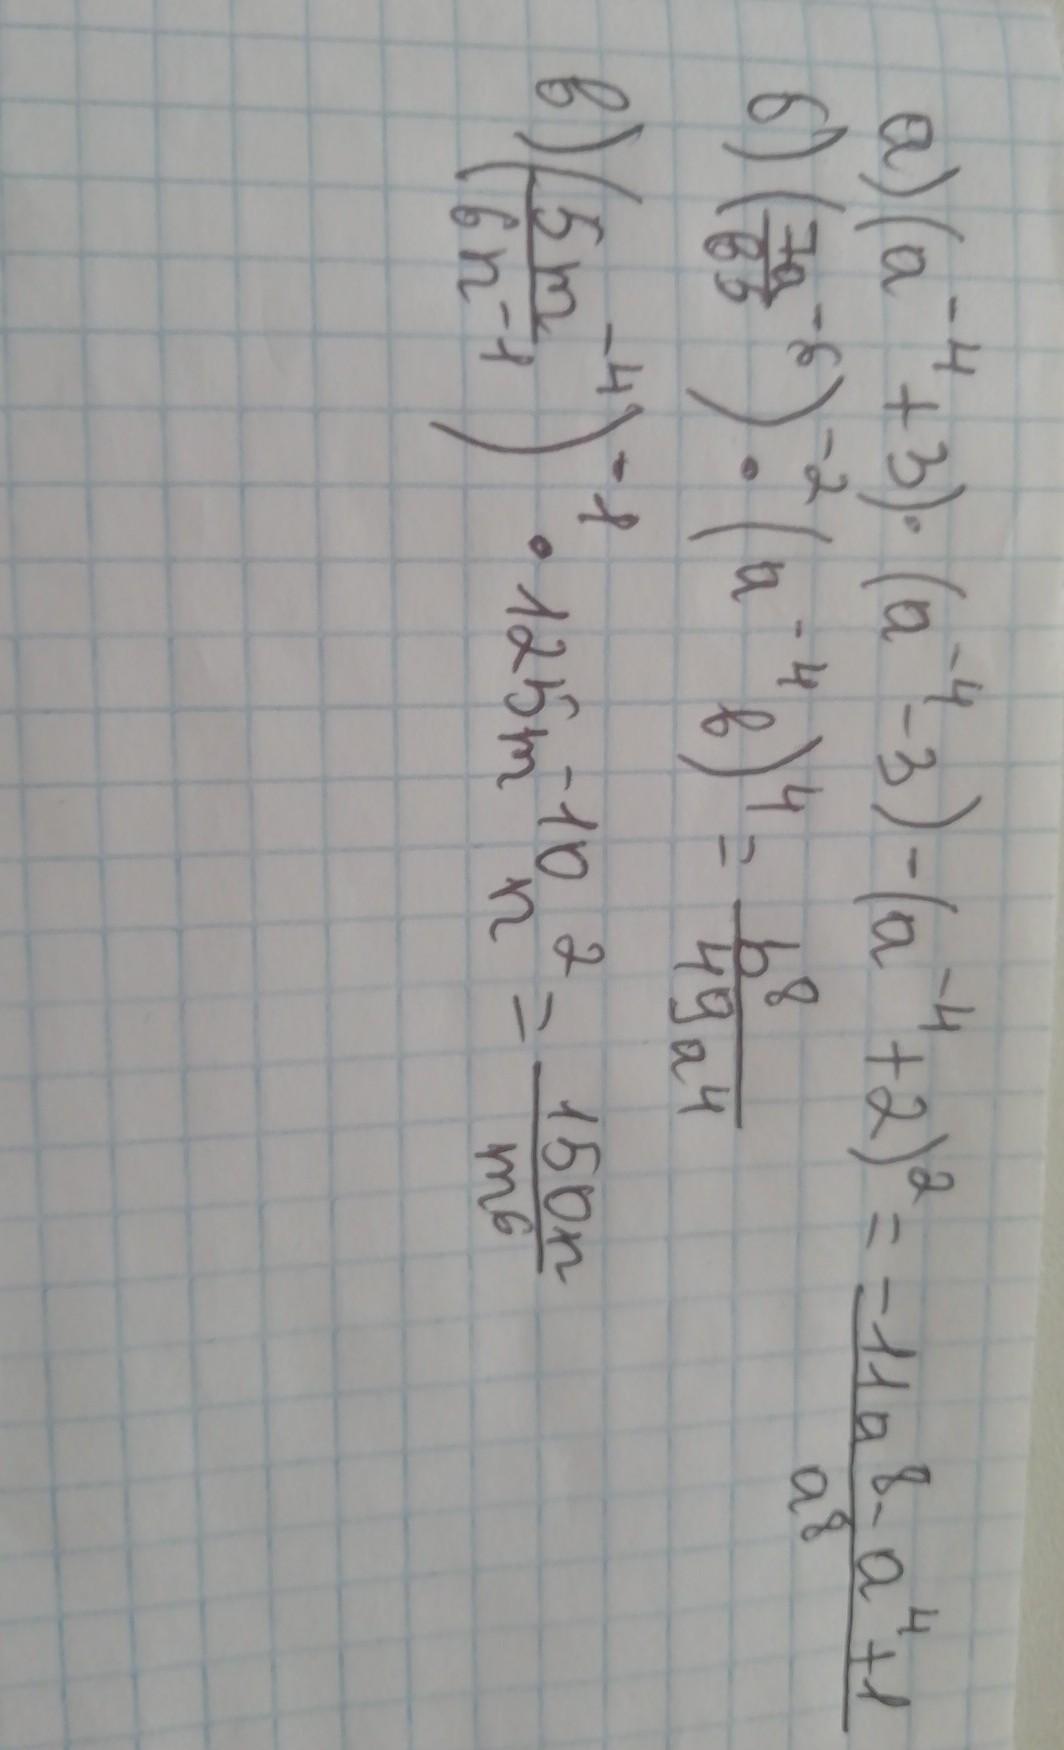 а) (a⁻⁴+3)·(a⁻⁴-3)-(a⁻⁴+2)² = (-11a⁸-a⁴+1)/a⁸
б) (7a⁻⁶/b⁵)⁻²·(a⁻⁴b)⁴ = b⁸/(49a⁴)
в) (5m⁻⁴/(6n⁻¹))⁻¹·125m⁻¹⁰n² = 150n/m⁶